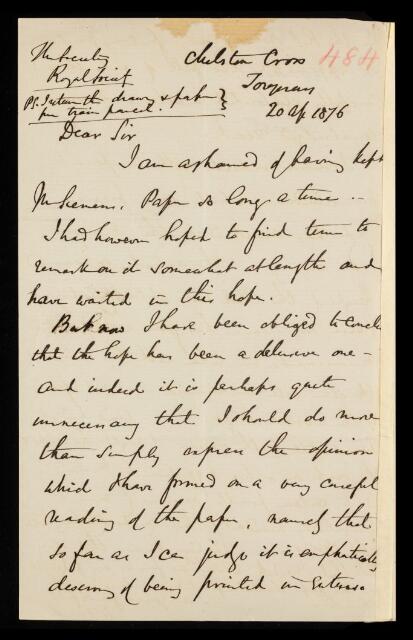 The Secretary
Royal Society
Chelston Cross
484
Torquay
20 Ap 1876
PS. I return the drawgs & paper
per train parcel.
Dear Sir
I am ashamed of having kept
Mr Siemens' Paper so long a time ..
I had however hoped to find time to
remark on it somewhat at length and
have waited in this hope.
But now I have been obliged to conclude
that the hope has been a delusive one -
and indeed it is perhaps quite
unnecessary that I should do more
than simply express the opinion
which I have formed on a very careful
reading of the paper, namely that
so far as I can judge it is emphatically
deserving of being printed in extenso